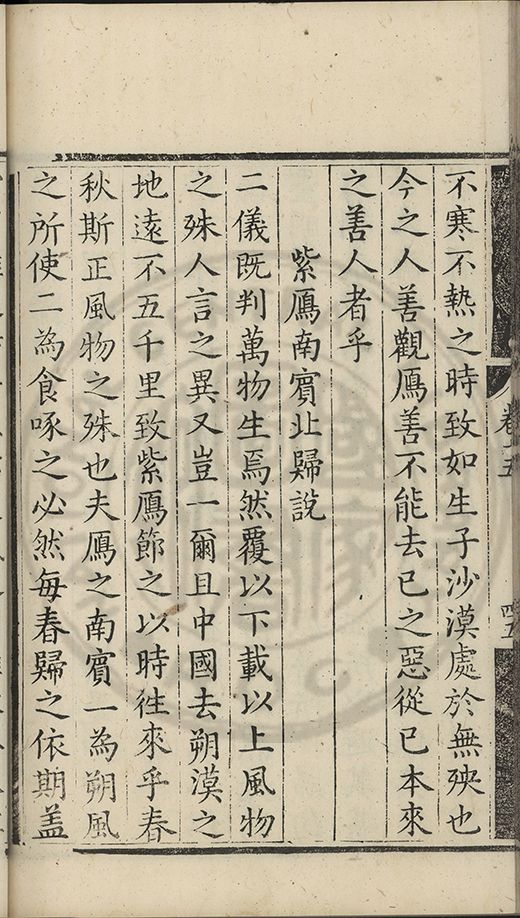 不寒不熱之時致如生子沙漠處於無殃也
今之人善觀鴈善不能去已之惡從已本來
之善人者乎
紫鴈南賓北歸說
二儀旣判萬物生焉然覆以下載以上風物
之殊人言之異又豈一爾且中國去朔漠之
地遠不五千里致紫鴈節之以時徃來乎春
秋斯正風物之殊也夫鴈之南賓一為朔風
之所使二為食啄之必然每春歸之依期盖